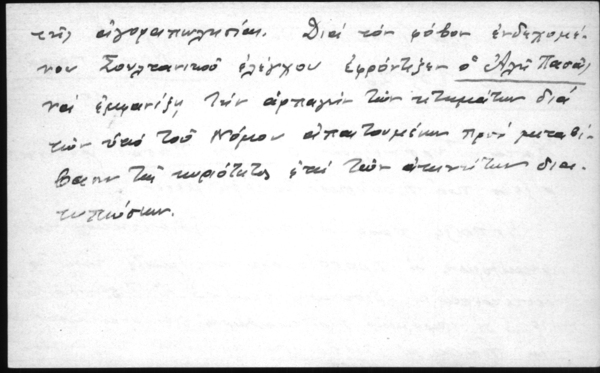 τῆς ἀγοραπωλησίας. Διά τόν φόβον ἐνδεχομέ-
νου Σουλτανικοῦ ἐλέγχου ἐφρόντιζεν ὁ Ἀλῆ Πασᾶς
νά ἐμφανίζῃ τήν ἁρπαγήν τῶν κτημάτων διά
τῶν ὑπό τοῦ Νόμου ἀπαιτουμένων πρός μεταβί-
βασιν τῆς κυριότητος ἐπί τῶν ἀκινήτων δια-
τυπώσεων.